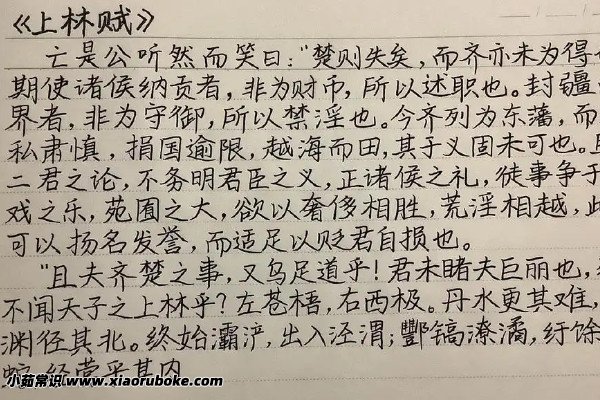 《上林赋》
亡是公听然而笑曰："楚则失矣，而齐亦未为得
期使诸侯纳贡者，非为财币，所以述职也。封疆
界者，非为守御，所以禁淫也。今齐列为东藩，而
私肃慎，捐国逾限，越海而田，其于义固未可也。
二君之论，不务明君臣之义，正诸侯之礼，徒事争于
戏之乐，苑囿之大，欲以奢侈相胜，荒淫相越，此
可以扬名发誉，而适足以贬君自损也。
"且夫齐楚之事，又乌足道乎！君未睹夫巨丽也，
不闻天子之上林乎？左苍梧，右西极。丹水更其难，
渊径其北。终始灞浐，出入泾渭；酆镐潦潏，纡馀
经营乎其内
小茹常识 www.xiaoruboke.com